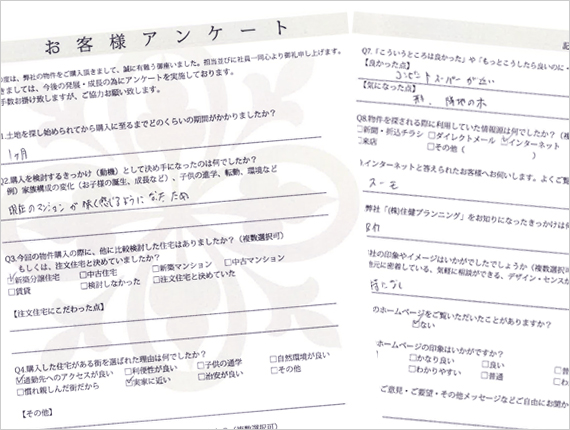 お客様アンケート
度は、弊社の物件をご購入頂きまして、誠に有難う御座いました。担当並びに社員一同心より御礼申し上げます。
きましては、今後の発展・成長の為にアンケートを実施しております。
手数お掛け致しますが、ご協力お願い致します。
1.土地を探し始められてから購入に至るまでどのくらいの期間がかかりましたか?
1ヶ月
Q2.購入を検討するきっかけ(動機)として決め手になったのは何でしたか?
例)家族構成の変化(お子様の誕生、成長など)、子供の進学、転勤、環境など
現在のマンションが狭く感じるようになったため
Q3.今回の物件購入の際に、他に比較検討した住宅はありましたか?(複数選択可)
もしくは、注文住宅と決めていましたか?
☑新築分譲住宅 □中古住宅 □新築マンション □中古マンション
□賃貸 □検討しなかった □注文住宅と決めていた
【注文住宅にこだわった点】
Q4.購入した住宅がある街を選ばれた理由は何でしたか?
☑通勤先へのアクセスが良い □利便性が良い □子供の通学 □自然環境が良い
□慣れ親しんだ街だから ☑実家に近い □治安が良い □その他
【その他】
(複数選択可)
記
Q7.「こういうところは良かった」や「もっとこうしたら良いのに・
【良かった点】
コンビニやスーパーが近い
【気になった点】
隣地の木
Q8.物件を探される際に利用していた情報源は何でしたか?(複
□新聞・折込チラシ □ダイレクトメール ☑インターネット
□来店 □その他( )
インターネットと答えられたお客様へお伺いします。よくご覧
スーモ
弊社「(株)住健プランニング」をお知りになったきっかけは何
社の印象やイメージはいかがでしたでしょうか(複数選択可
元に密着している、気軽に相談ができる、デザイン・センスが
特になし
のホームページをご覧いただいたことがありますか?
☑ない
ホームページの印象はいかがですか?
□かなり良い □良い
□わかりやすい □普通 □わ
ご意見・ご要望・その他メッセージなどご自由にお聞か